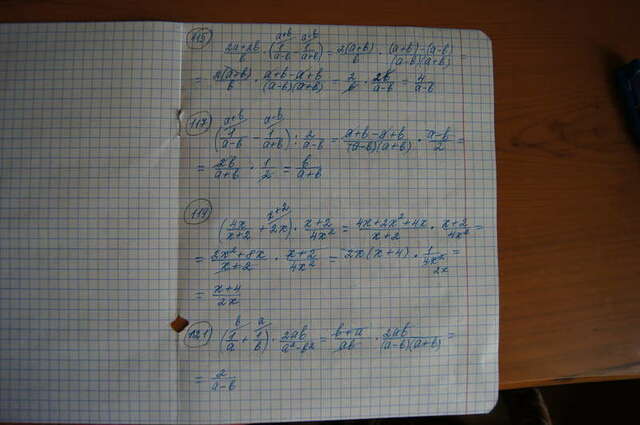 115
(2a+2b)/b · (1/(a-b) - 1/(a+b)) = 2(a+b)/b · ((a+b)-(a-b))/((a-b)(a+b)) =
= 2(a+b)/b · (a+b-a+b)/((a-b)(a+b)) = 2/b · 2b/(a-b) = 4/(a-b)
117
(1/(a-b) - 1/(a+b)) : 2/(a-b) = (a+b-a+b)/((a-b)(a+b)) · (a-b)/2 =
= 2b/(a+b) · 1/2 = b/(a+b)
119
(4x/(x+2) + 2x) · (x+2)/4x² = (4x+2x²+4x)/(x+2) · (x+2)/4x² =
= (2x²+8x)/(x+2) · (x+2)/4x² = 2x(x+4) · 1/4x² =
= (x+4)/2x
121
(1/a + 1/b) · 2ab/(a²-b²) = (b+a)/ab · 2ab/((a-b)(a+b)) =
= 2/(a-b)